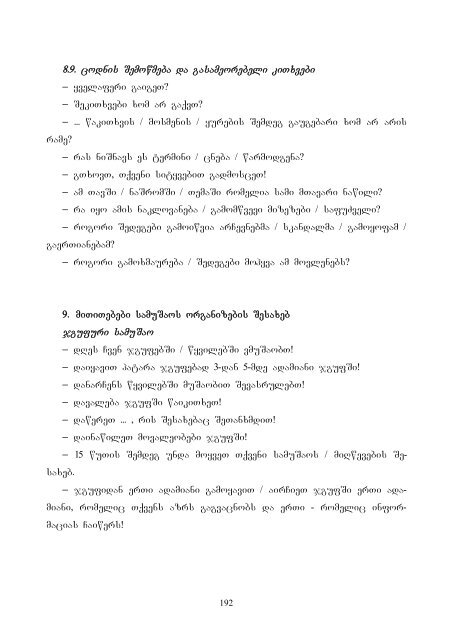 8.9. ცოდნის შემოწმება და გასამეორებელი კითხვები
– ყველაფერი გაიგეთ?
– შეკითხვები ხომ არ გაქვთ?
– ... წაკითხვის / მოსმენის / ყურების შემდეგ გაუგებარი ხომ არ არის
რამე?
– რას ნიშნავს ეს ტერმინი / ცნება / წარმოდგენა?
– გთხოვთ, თქვენი სიტყვებით გადმოსცეთ!
– ამ თავში / ნაშრომში / თემაში რომელია სამი მთავარი ნაწილი?
– რა იყო ამის ნაკლოვანება / გამომწვევი მიზეზები / საფუძველი?
– როგორი შედეგები გამოიწვია არჩევნებმა / სკანდალმა / გამოყოფამ /
გაერთიანებამ?
– როგორი გამოხმაურება / შედეგები მოჰყვა ამ მოვლენებს?
9. მითითებები სამუშაოს ორგანიზების შესახებ
ჯგუფური სამუშაო
– დღეს ჩვენ ჯგუფებში / წყვილებში ვმუშაობთ!
– დაიყავით პატარა ჯგუფებად 3-დან 5-მდე ადამიანი ჯგუფში!
– დანარჩენს წყვილებში მუშაობით შევასრულებთ!
– დავალება ჯგუფში წაიკითხეთ!
– დაწერეთ ... , რის შესახებაც შეთანხმდით!
– დაინაწილეთ მოვალეობები ჯგუფში!
– 15 წუთის შემდეგ უნდა მოყვეთ თქვენი სამუშაოს / მიღწევების შე-
სახებ.
– ჯგუფიდან ერთი ადამიანი გამოყავით / აირჩიეთ ჯგუფში ერთი ადა-
მიანი, რომელიც თქვენს აზრს გაგვაცნობს და ერთი - რომელიც ინფორ-
მაციას ჩაიწერს!
192